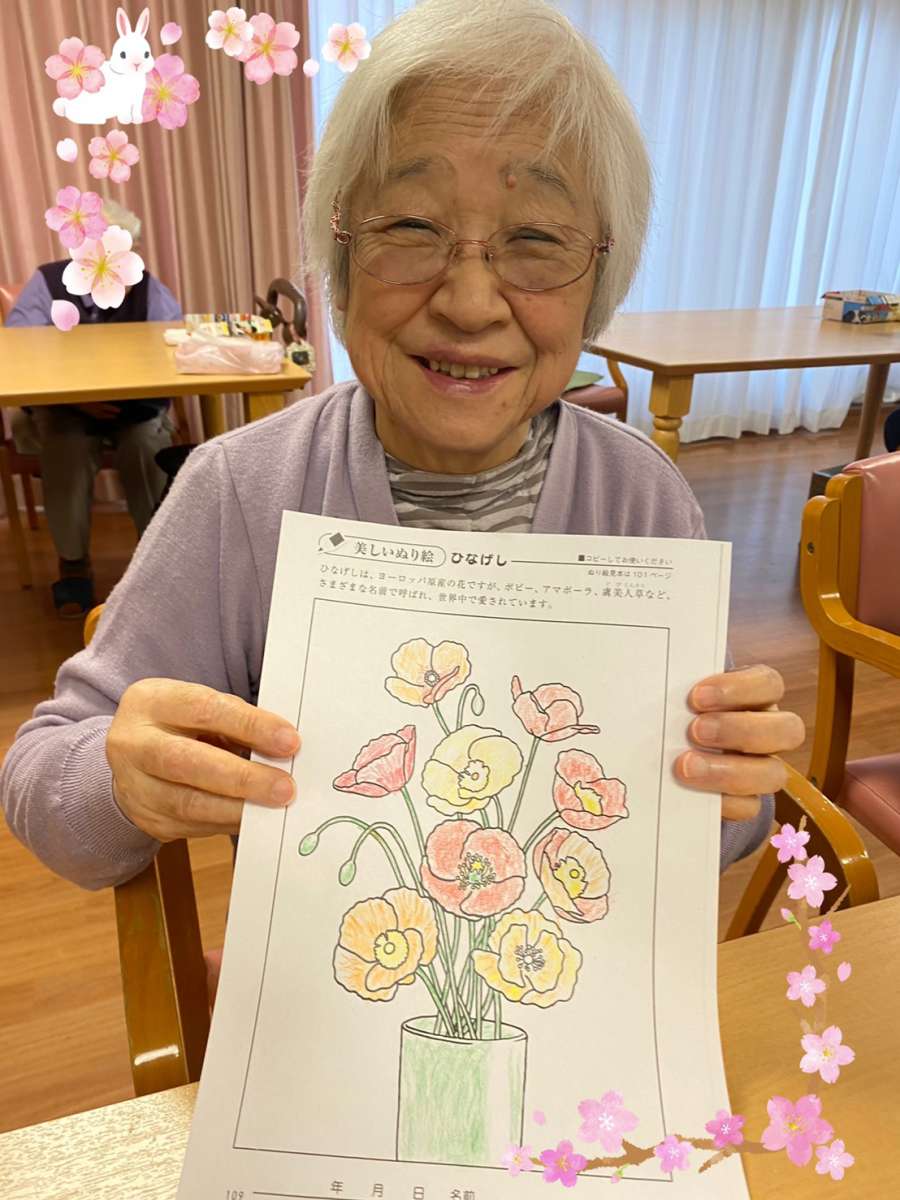 美しいぬり絵 ひなげし ■コピーしてお使いください
ぬり絵見本は101ページ
ひなげしは、ヨーロッパ原産の花ですが、ポピー、アマポーラ、虞美人草など、
さまざまな名前で呼ばれ、世界中で愛されています。
109 年 月 日 名前